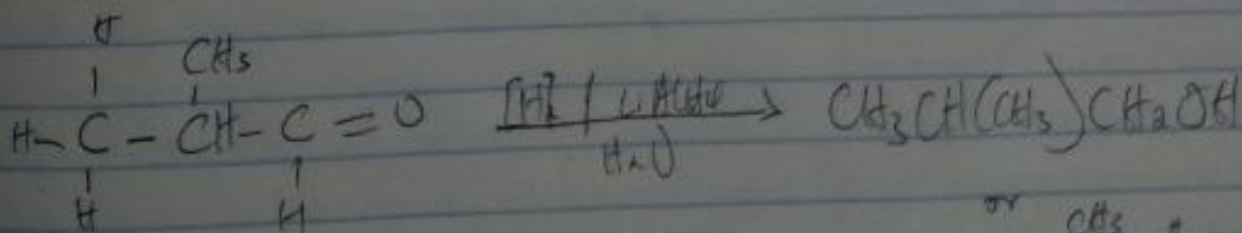 H
CH3
H-C-CH-C=O [H] / LiAlH4 → CH3CH(CH3)CH2OH
H2O
H H
or CH3